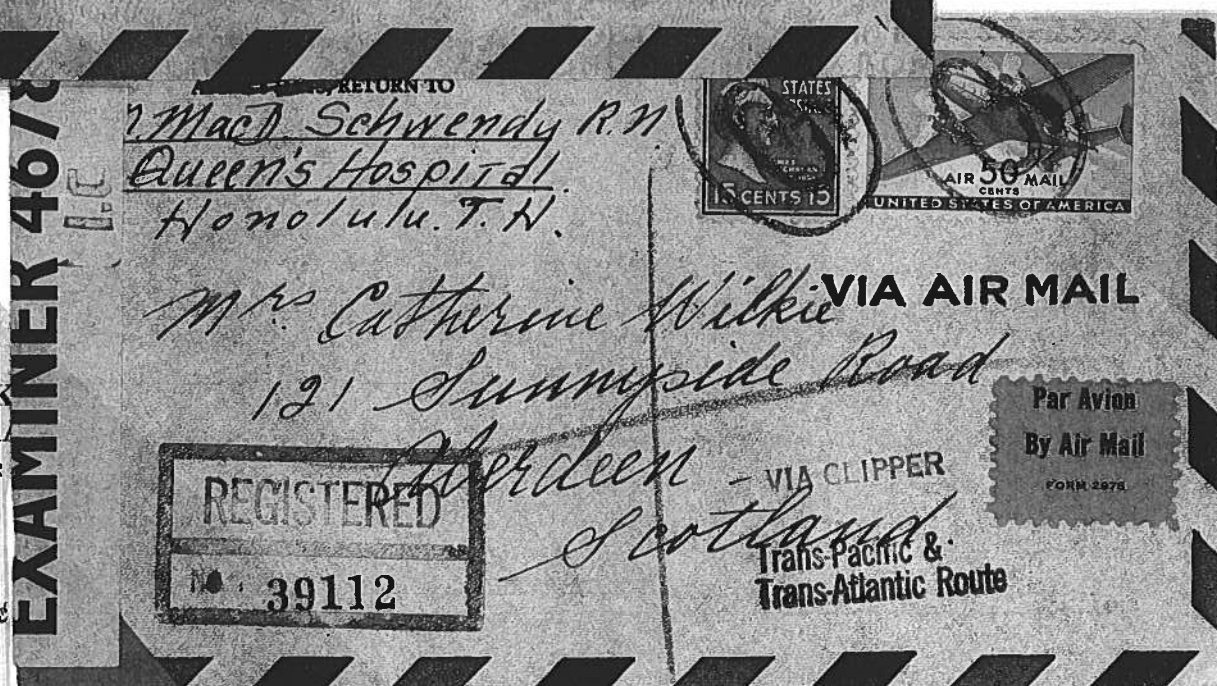 RETURN TO
MacD. Schwendy R.N.
Queen's Hospital.
Honolulu. T. H.
STATES
15 CENTS 15
AIR 50 MAIL
CENTS
UNITED STATES OF AMERICA
VIA AIR MAIL
Mrs Catherine Wilkie
121 Sunnyside Road
Aberdeen
Scotland
Par Avion
By Air Mail
FORM 2978
VIA CLIPPER
Trans-Pacific &
Trans-Atlantic Route
REGISTERED
No 39112
EXAMINER 4678
I.C